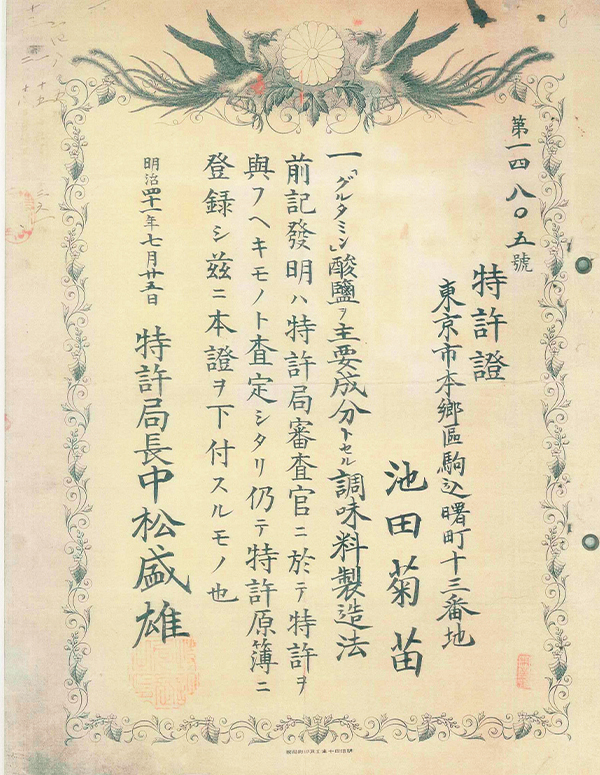 第一四八〇五號
特許證
東京市本郷區駒込曙町十三番地
池田菊苗
一「グルタミン」酸鹽ヲ主要成分トセル調味料製造法
前記發明ハ特許局審査官ニ於テ特許ヲ
與フヘキモノト査定シタリ仍テ特許原簿ニ
登録シ茲ニ本證ヲ下付スルモノ也
明治四十一年七月廿五日
特許局長中松盛雄